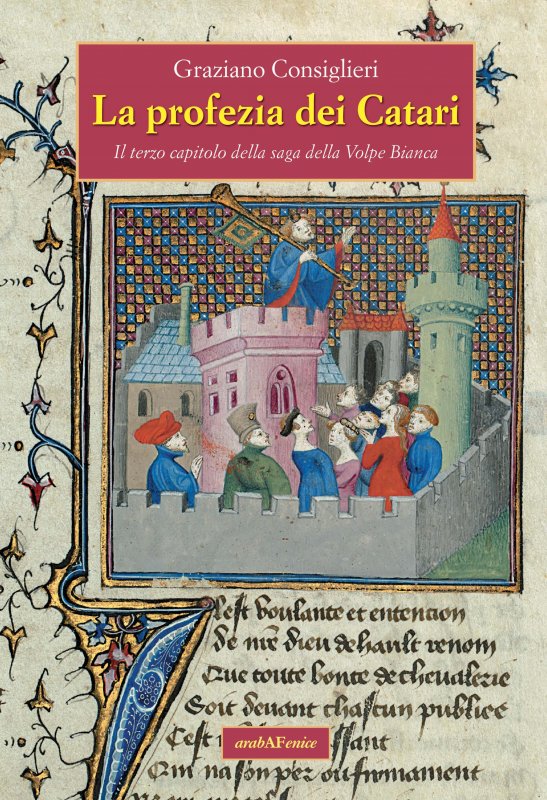 Graziano Consiglieri
La profezia dei Catari
Il terzo capitolo della saga della Volpe Bianca
est voulante et entencion
De nre dieu de hault renom
Que toute bonte de cheualerie
Soit deuant chascun publiee
Cest
arabAFenice
ssant
Qui na son per ou firmament